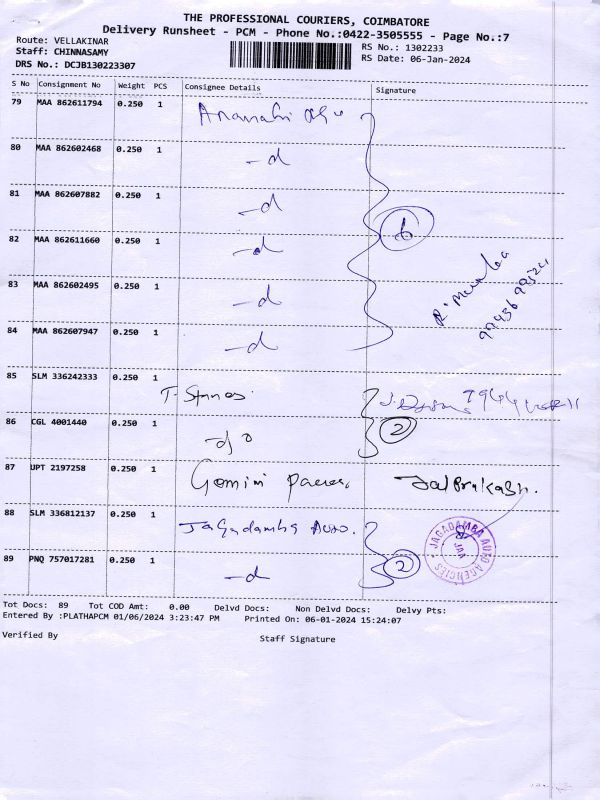 THE PROFESSIONAL COURIERS, COIMBATORE
Delivery Runsheet - PCM - Phone No.:0422-3505555 - Page No.:7
Route: VELLAKINAR
RS No.: 1302233
Staff: CHINNASAMY
RS Date: 06-Jan-2024
DRS No.: DCJB130223307
S No Consignment No Weight PCS Consignee Details Signature
79 MAA 862611794 0.250 1
80 MAA 862602468 0.250 1 -d
81 MAA 862607882 0.250 1 -d
6
82 MAA 862611660 0.250 1 -d
83 MAA 862602495 0.250 1 -d
84 MAA 862607947 0.250 1 -d
85 SLM 336242333 0.250 1
86 CGL 4001440 0.250 1 2
87 UPT 2197258 0.250 1 Gomini Jai Prakash.
88 SLM 336812137 0.250 1 Jagadamba Auto.
JAGADAMBA AUTO AGENCIES
89 PNQ 757017281 0.250 1 -d 2
Tot Docs: 89 Tot COD Amt: 0.00 Delvd Docs: Non Delvd Docs: Delvy Pts:
Entered By :PLATHAPCM 01/06/2024 3:23:47 PM Printed On: 06-01-2024 15:24:07
Verified By Staff Signature